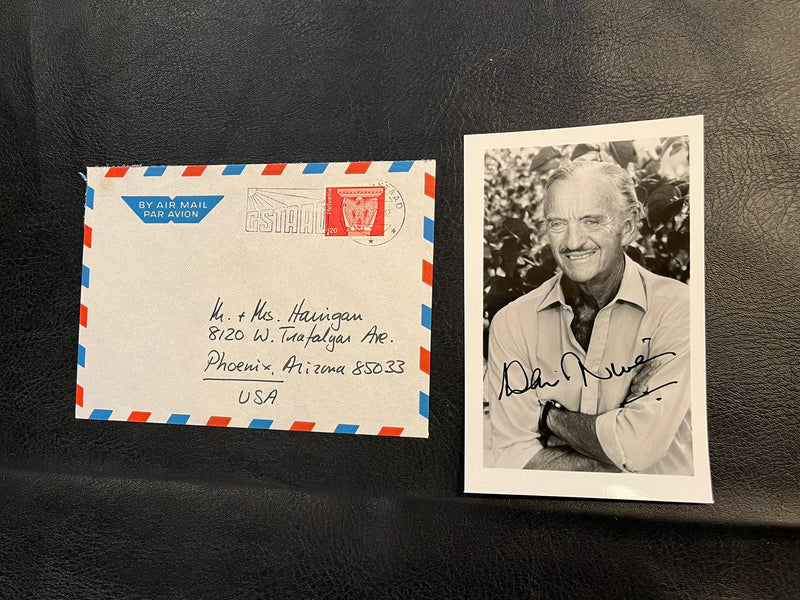 BY AIR MAIL
PAR AVION
GSTAAD
GSTAAD
Helvetia
120
M. + Mrs. Harrigan
8120 W. Trafalgar Ave.
Phoenix, Arizona 85033
USA
David Niven